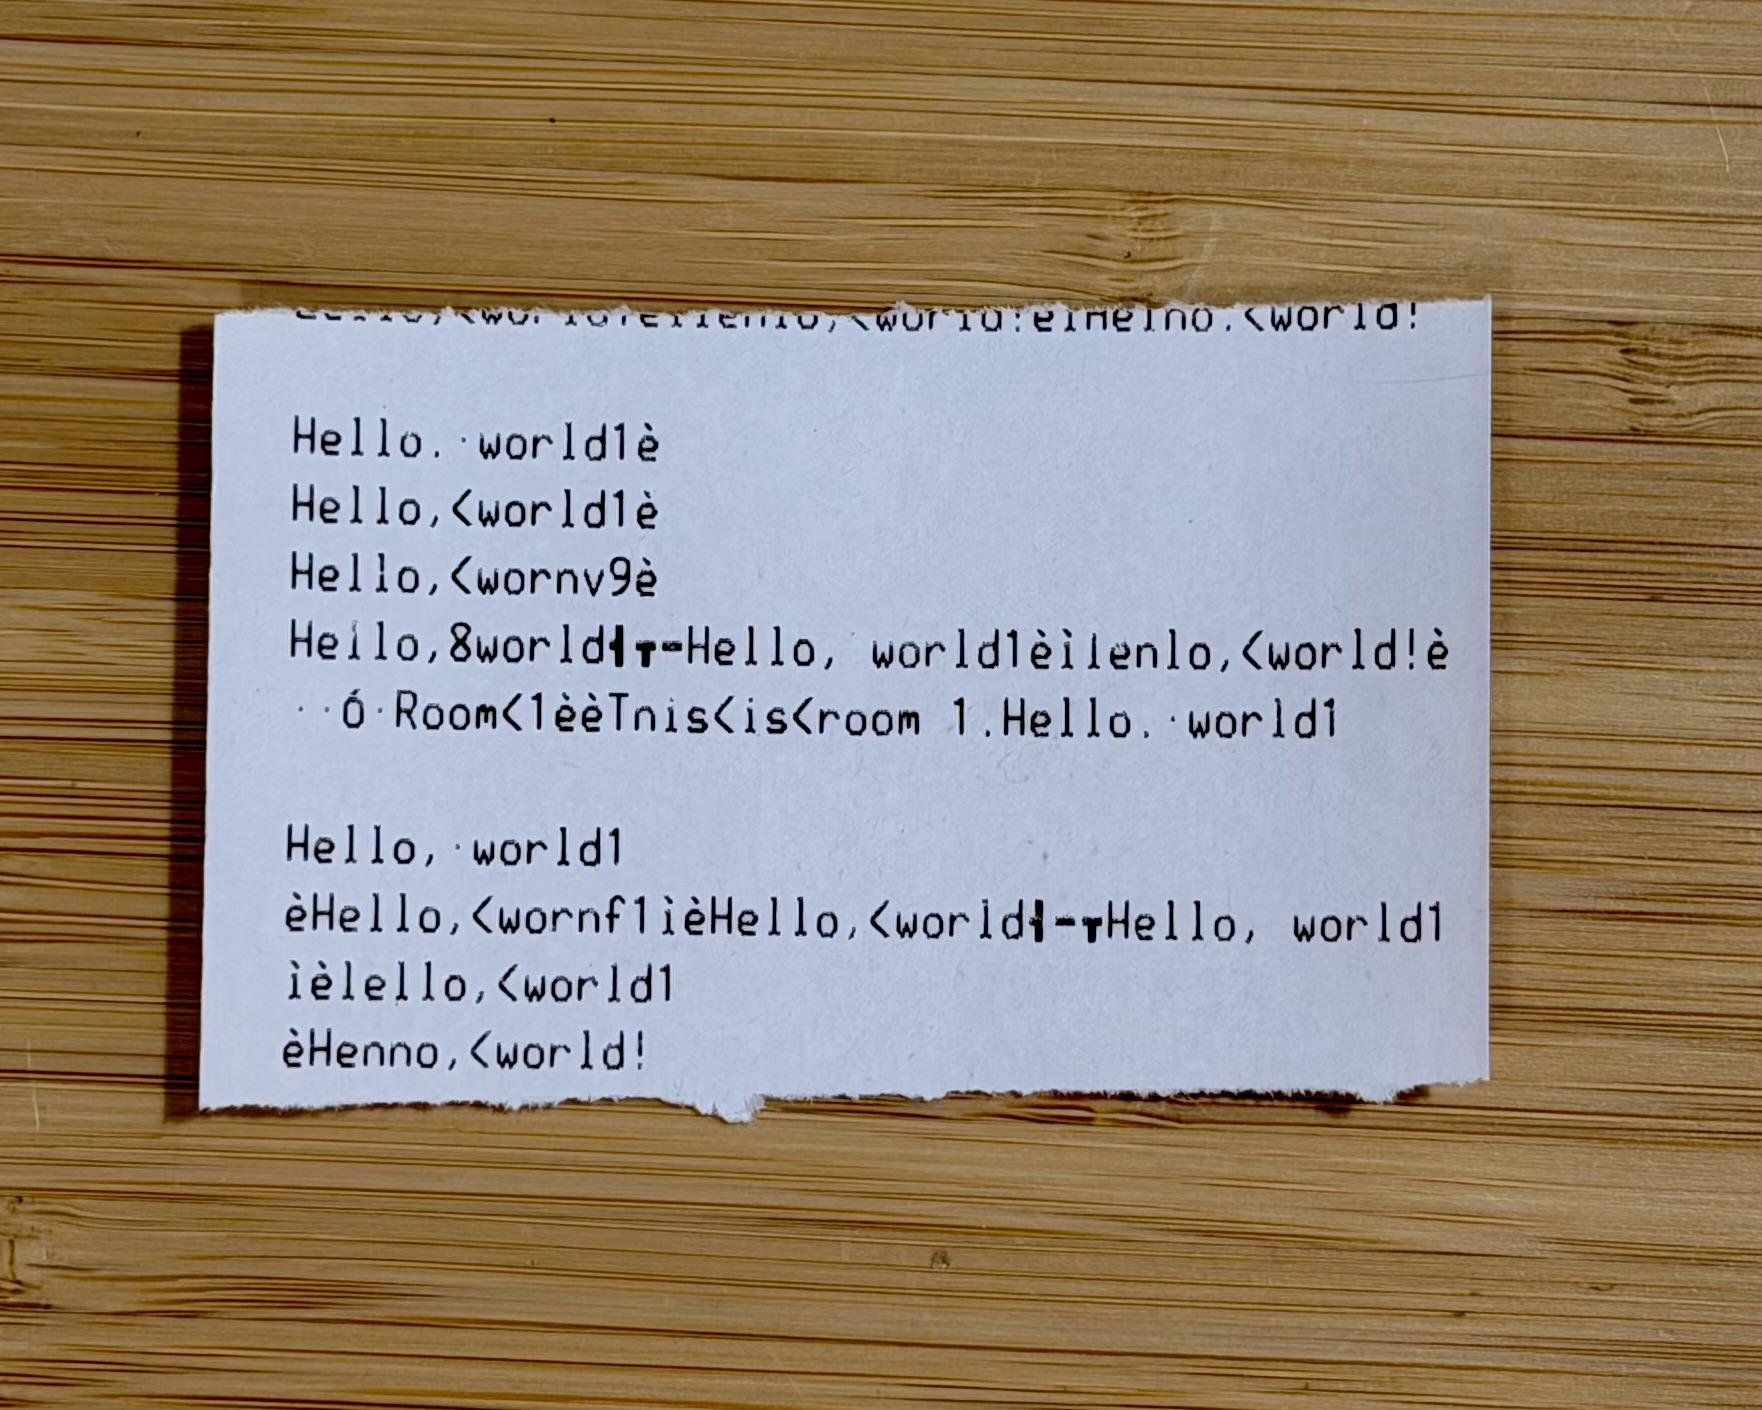 <world!eìHelno.<world!
Hello. ·world1è
Hello,<world1è
Hello,<wornv9è
Hello,8world┫┳━Hello, world1èìlenlo,<world!è
··ó·Room<1èèTnis<is<room 1.Hello. ·world1
Hello, ·world1
èHello,<wornf1ìèHello,<world┫━┳Hello, world1
ìèlello,<world1
èHenno,<world!